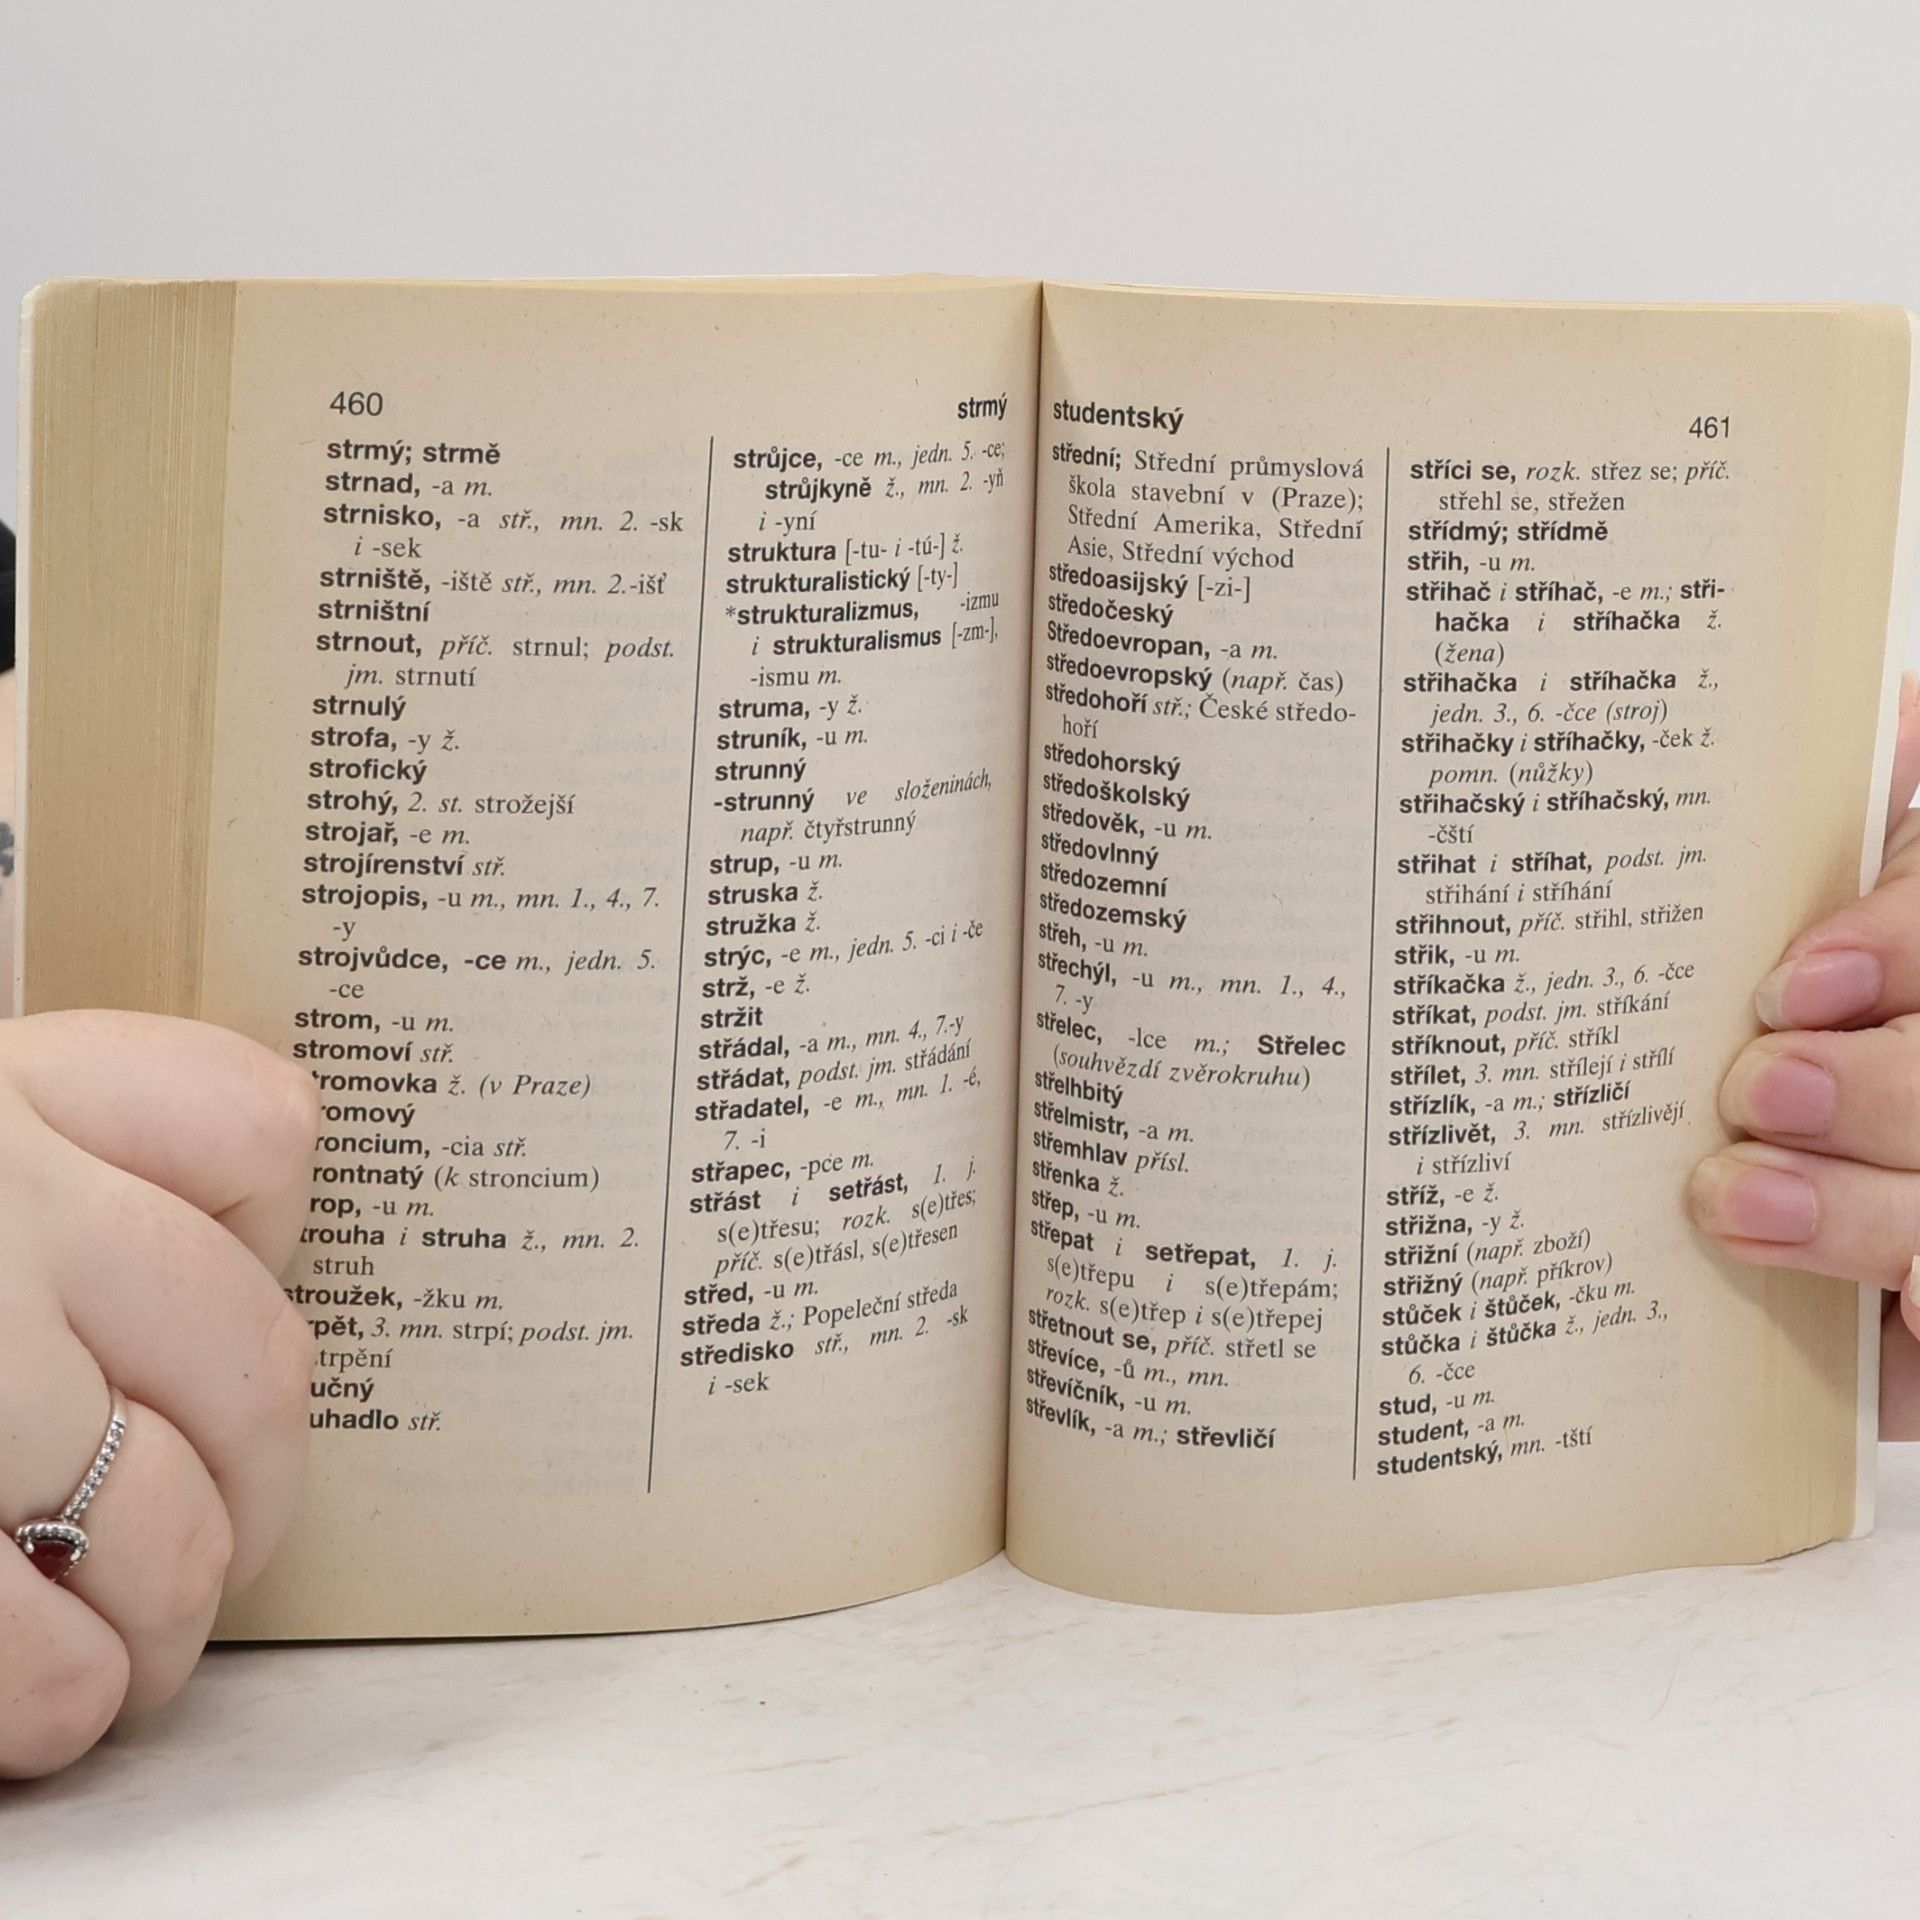 460
strmý
strmý; strmě
strnad, -a m.
strnisko, -a stř., mn. 2. -sk
i -sek
strniště, -iště stř., mn. 2.-išť
strništní
strnout, příč. strnul; podst.
jm. strnutí
strnulý
strofa, -y ž.
strofický
strohý, 2. st. strožejší
strojař, -e m.
strojírenství stř.
strojopis, -u m., mn. 1., 4., 7.
-y
strojvůdce, -ce m., jedn. 5.
-ce
strom, -u m.
stromoví stř.
tromovka ž. (v Praze)
romový
roncium, -cia stř.
rontnatý (k stroncium)
rop, -u m.
trouha i struha ž., mn. 2.
struh
stroužek, -žku m.
rpět, 3. mn. strpí; podst. jm.
trpění
učný
uhadlo stř.
strůjce, -ce m., jedn. 5. -ce;
strůjkyně ž., mn. 2. -yň
i -yní
struktura [-tu- i -tú-] ž.
strukturalistický [-ty-]
*strukturalizmus, -izmu
i strukturalismus [-zm-],
-ismu m.
struma, -y ž.
struník, -u m.
strunný
-strunný ve složeninách,
např. čtyřstrunný
strup, -u m.
struska ž.
stružka ž.
strýc, -e m., jedn. 5. -ci i -če
strž, -e ž.
stržit
střádal, -a m., mn. 4., 7.-y
střádat, podst. jm. střádání
střadatel, -e m., mn. 1. -é,
7. -i
střapec, -pce m.
střást i setřást, 1. j.
s(e)třesu; rozk. s(e)třes;
příč. s(e)třásl, s(e)třesen
střed, -u m.
středa ž.; Popeleční středa
středisko stř., mn. 2. -sk
i -sek
studentský
461
střední; Střední průmyslová
škola stavební v (Praze);
Střední Amerika, Střední
Asie, Střední východ
středoasijský [-zi-]
středočeský
Středoevropan, -a m.
středoevropský (např. čas)
středohoří stř.; České středo-
hoří
středohorský
středoškolský
středověk, -u m.
středovlnný
středozemní
středozemský
střeh, -u m.
střechýl, -u m., mn. 1., 4.,
7. -y
střelec, -lce m.; Střelec
(souhvězdí zvěrokruhu)
střelhbitý
střelmistr, -a m.
střemhlav přísl.
střenka ž.
střep, -u m.
střepat i setřepat, 1. j.
s(e)třepu i s(e)třepám;
rozk. s(e)třep i s(e)třepej
střetnout se, příč. střetl se
střevíce, -ů m., mn.
střevíčník, -u m.
střevlík, -a m.; střevličí
stříci se, rozk. střez se; příč.
střehl se, střežen
střídmý; střídmě
střih, -u m.
střihač i stříhač, -e m.; stři-
hačka i stříhačka ž.
(žena)
střihačka i stříhačka ž.,
jedn. 3., 6. -čce (stroj)
střihačky i stříhačky, -ček ž.
pomn. (nůžky)
střihačský i stříhačský, mn.
-čští
střihat i stříhat, podst. jm.
střihání i stříhání
střihnout, příč. střihl, střižen
střik, -u m.
stříkačka ž., jedn. 3., 6. -čce
stříkat, podst. jm. stříkání
stříknout, příč. stříkl
střílet, 3. mn. střílejí i střílí
střízlík, -a m.; střízličí
střízlivět, 3. mn. střízlivějí
i střízliví
stříž, -e ž.
střižna, -y ž.
střižní (např. zboží)
střižný (např. příkrov)
stůček i štůček, -čku m.
stůčka i štůčka ž., jedn. 3.,
6. -čce
stud, -u m.
student, -a m.
studentský, mn. -tští